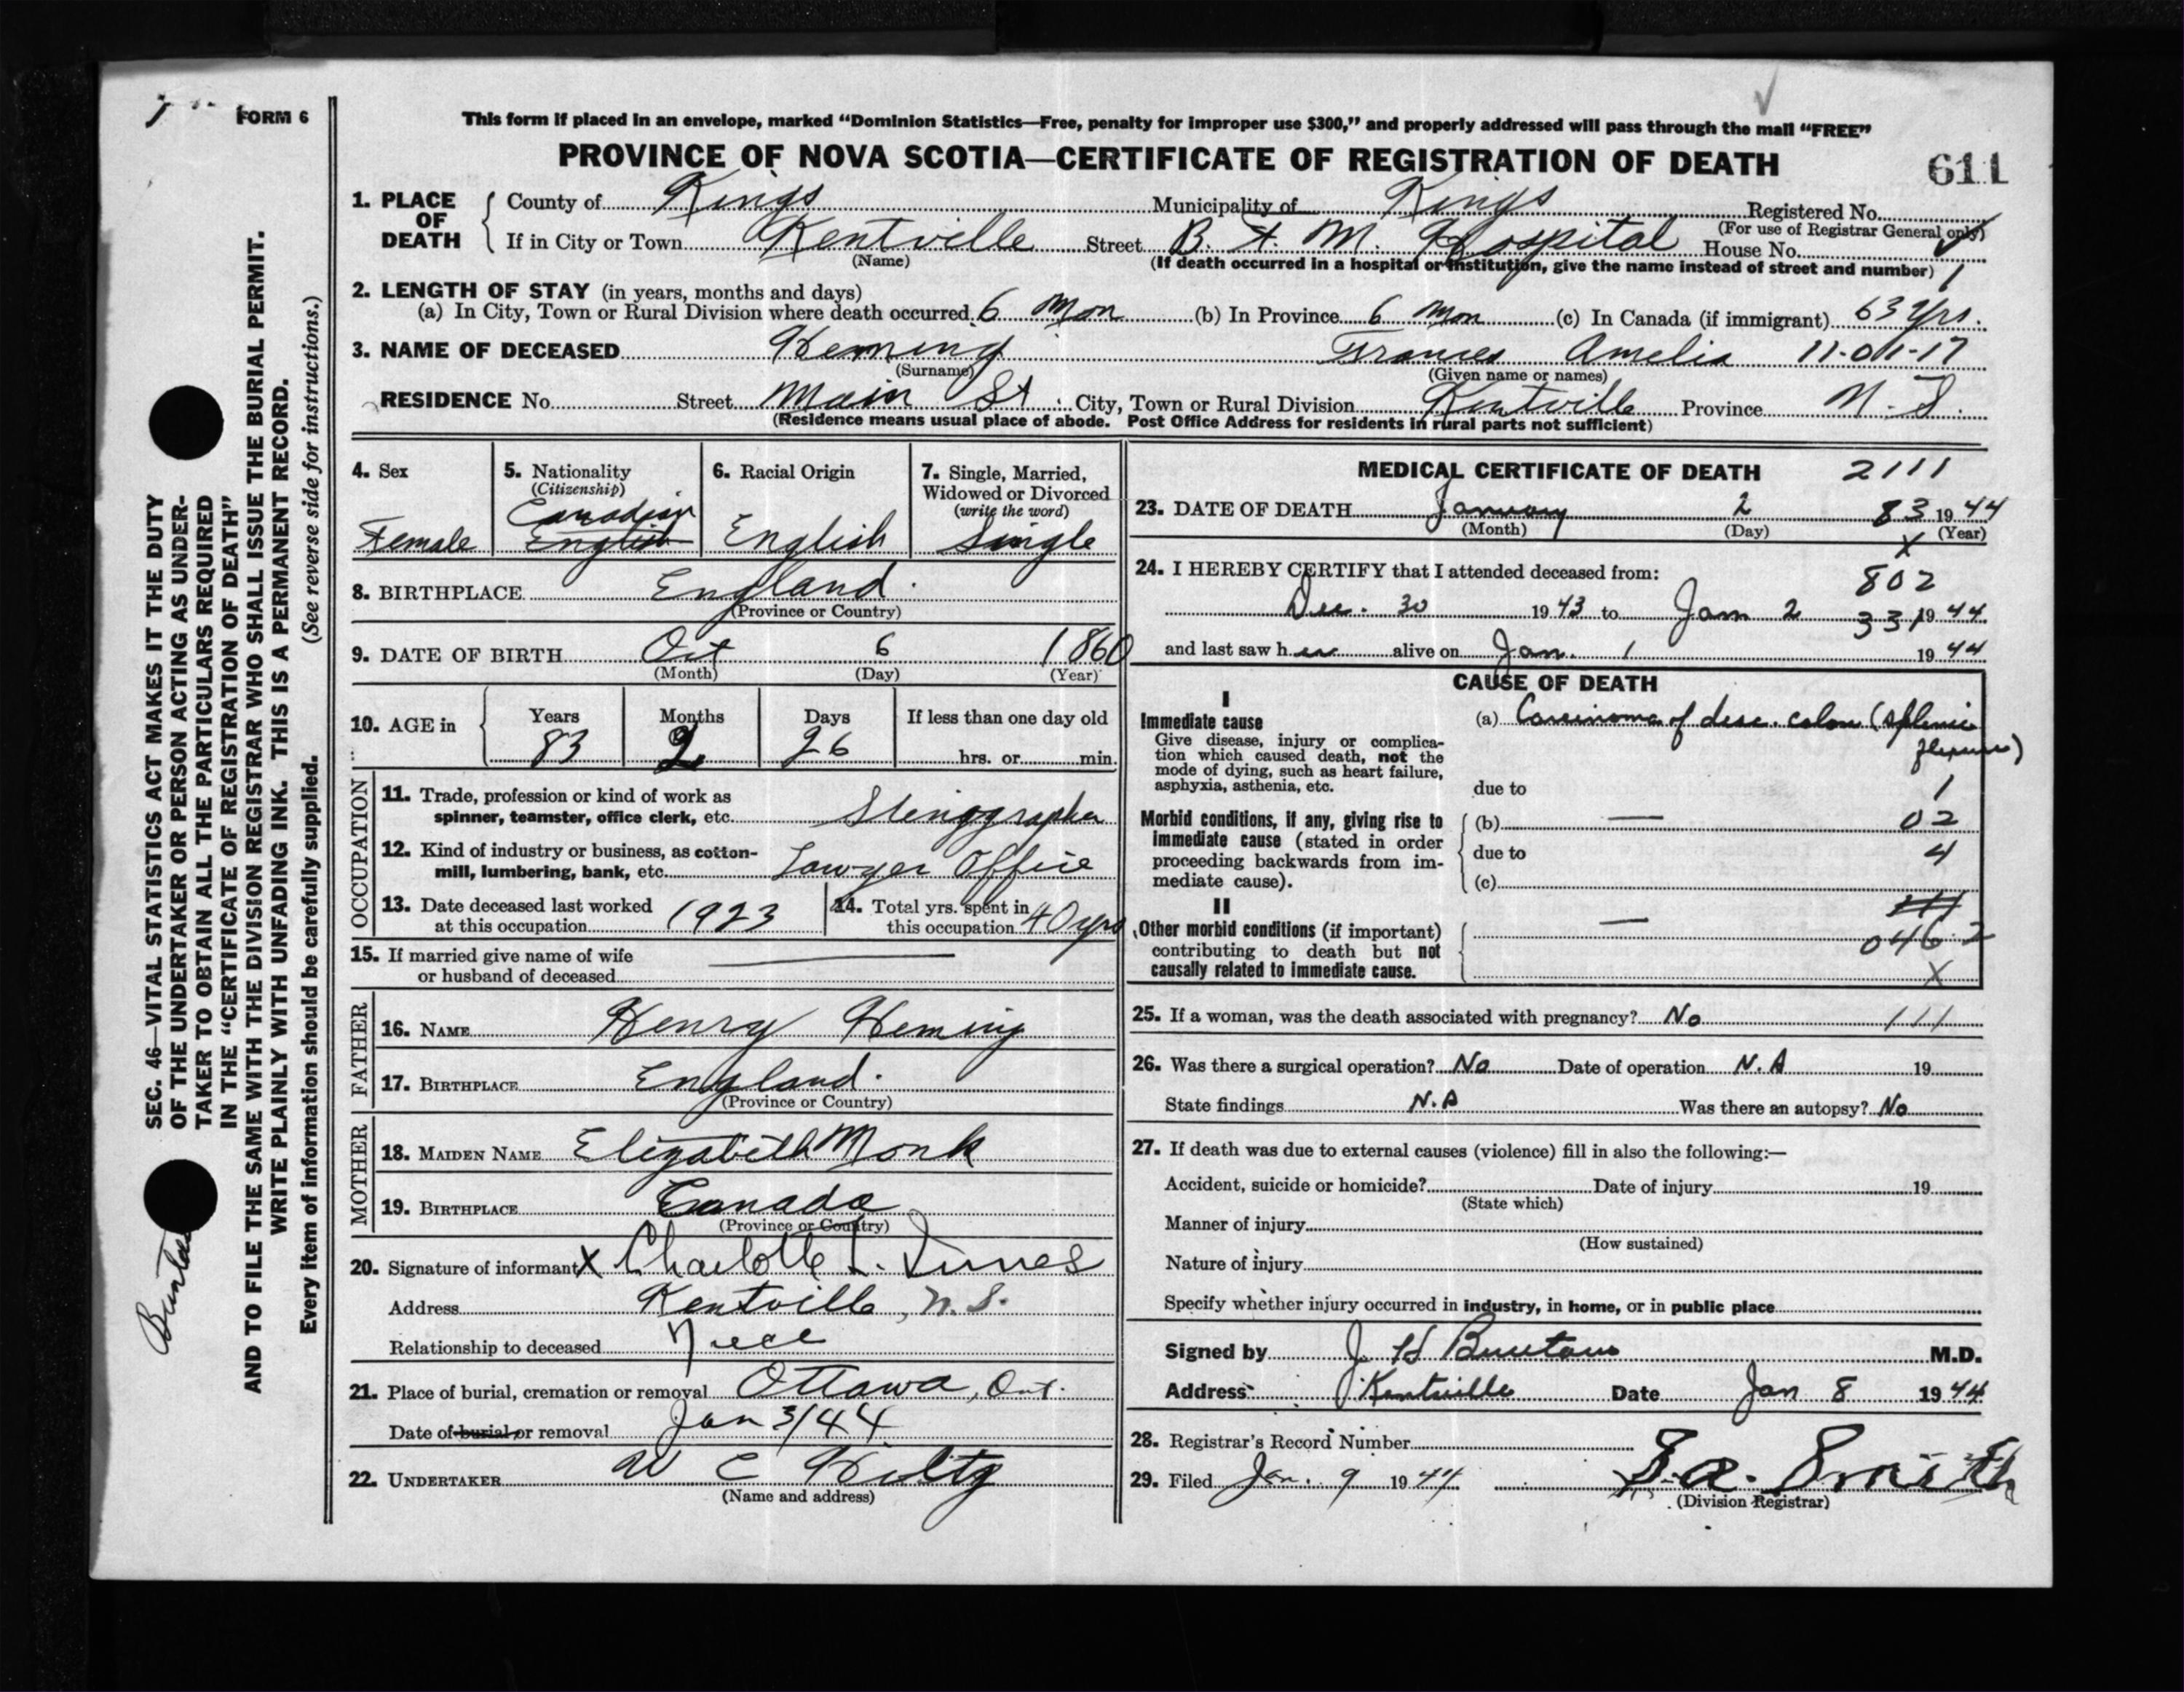 FORM 6
This form if placed in an envelope, marked “Dominion Statistics—Free, penalty for improper use $300,” and properly addressed will pass through the mail “FREE”
PROVINCE OF NOVA SCOTIA—CERTIFICATE OF REGISTRATION OF DEATH
611
1. PLACE OF DEATH County of Kings Municipality of Kings Registered No.
(For use of Registrar General only)
If in City or Town Kentville Street B. F. M. Hospital House No.
(Name) (If death occurred in a hospital or institution, give the name instead of street and number) 1
2. LENGTH OF STAY (in years, months and days)
(a) In City, Town or Rural Division where death occurred 6 Mon (b) In Province 6 Mon (c) In Canada (if immigrant) 63 Yrs.
3. NAME OF DECEASED Heming Frances Amelia 11-01-17
(Surname) (Given name or names)
RESIDENCE No. Street Main St. City, Town or Rural Division Kentville Province N.S.
(Residence means usual place of abode. Post Office Address for residents in rural parts not sufficient)
4. Sex
Female
5. Nationality
(Citizenship)
Canadian
English
6. Racial Origin
English
7. Single, Married,
Widowed or Divorced
(write the word)
Single
8. BIRTHPLACE England.
(Province or Country)
9. DATE OF BIRTH Oct 6 1860
(Month) (Day) (Year)
10. AGE in Years Months Days If less than one day old
83 2 26 hrs. or min.
OCCUPATION
11. Trade, profession or kind of work as
spinner, teamster, office clerk, etc. Stenographer
12. Kind of industry or business, as cotton-
mill, lumbering, bank, etc. Lawyer Office
13. Date deceased last worked
at this occupation 1923
14. Total yrs. spent in
this occupation 40 yrs
15. If married give name of wife
or husband of deceased
FATHER
16. NAME Henry Heming
17. BIRTHPLACE England.
(Province or Country)
MOTHER
18. MAIDEN NAME Elizabeth Monk
19. BIRTHPLACE Canada
(Province or Country)
20. Signature of informant X Charlotte L. Innes
Address Kentville, N.S.
Relationship to deceased Niece
21. Place of burial, cremation or removal Ottawa, Ont.
Date of burial or removal Jan 3/44
22. UNDERTAKER W C Hiltz
(Name and address)
MEDICAL CERTIFICATE OF DEATH 2111
23. DATE OF DEATH January 2 83 1944
(Month) (Day) (Year)
X
24. I HEREBY CERTIFY that I attended deceased from: 802
Dec. 30 1943 to Jan 2 331 1944
and last saw her alive on Jan. 1 1944
CAUSE OF DEATH
I
Immediate cause
Give disease, injury or complica-
tion which caused death, not the
mode of dying, such as heart failure,
asphyxia, asthenia, etc.
(a) Carcinoma of desc. colon (splenic
flexure)
due to 1
Morbid conditions, if any, giving rise to
immediate cause (stated in order
proceeding backwards from im-
mediate cause).
(b) — 02
due to 4
(c)
II
Other morbid conditions (if important)
contributing to death but not
causally related to immediate cause.
—
046.2
X
25. If a woman, was the death associated with pregnancy? No 111
26. Was there a surgical operation? No Date of operation N.A 19
State findings N.A Was there an autopsy? No
27. If death was due to external causes (violence) fill in also the following:—
Accident, suicide or homicide? Date of injury 19
(State which)
Manner of injury
(How sustained)
Nature of injury
Specify whether injury occurred in industry, in home, or in public place
Signed by J. H M.D.
Address Kentville Date Jan 8 1944
28. Registrar's Record Number
29. Filed Jan. 9 1944 Smith
(Division Registrar)
SEC. 46—VITAL STATISTICS ACT MAKES IT THE DUTY
OF THE UNDERTAKER OR PERSON ACTING AS UNDER-
TAKER TO OBTAIN ALL THE PARTICULARS REQUIRED
IN THE “CERTIFICATE OF REGISTRATION OF DEATH”
AND TO FILE THE SAME WITH THE DIVISION REGISTRAR WHO SHALL ISSUE THE BURIAL PERMIT.
WRITE PLAINLY WITH UNFADING INK. THIS IS A PERMANENT RECORD.
Every item of information should be carefully supplied. (See reverse side for instructions.)